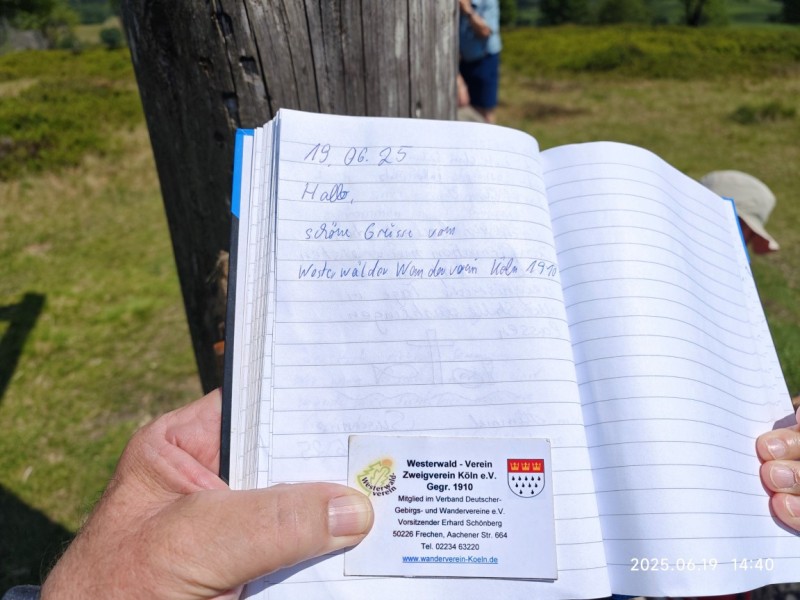 19.06.25
Hallo,
schöne Grüsse vom
Westerwälder Wanderverein Köln 1910
Westerwald-
verein
Westerwald - Verein
Zweigverein Köln e.V.
Gegr. 1910
Mitglied im Verband Deutscher-
Gebirgs- und Wandervereine e.V.
Vorsitzender Erhard Schönberg
50226 Frechen, Aachener Str. 664
Tel. 02234 63220
www.wanderverein-Koeln.de
2025.06.19 14:40